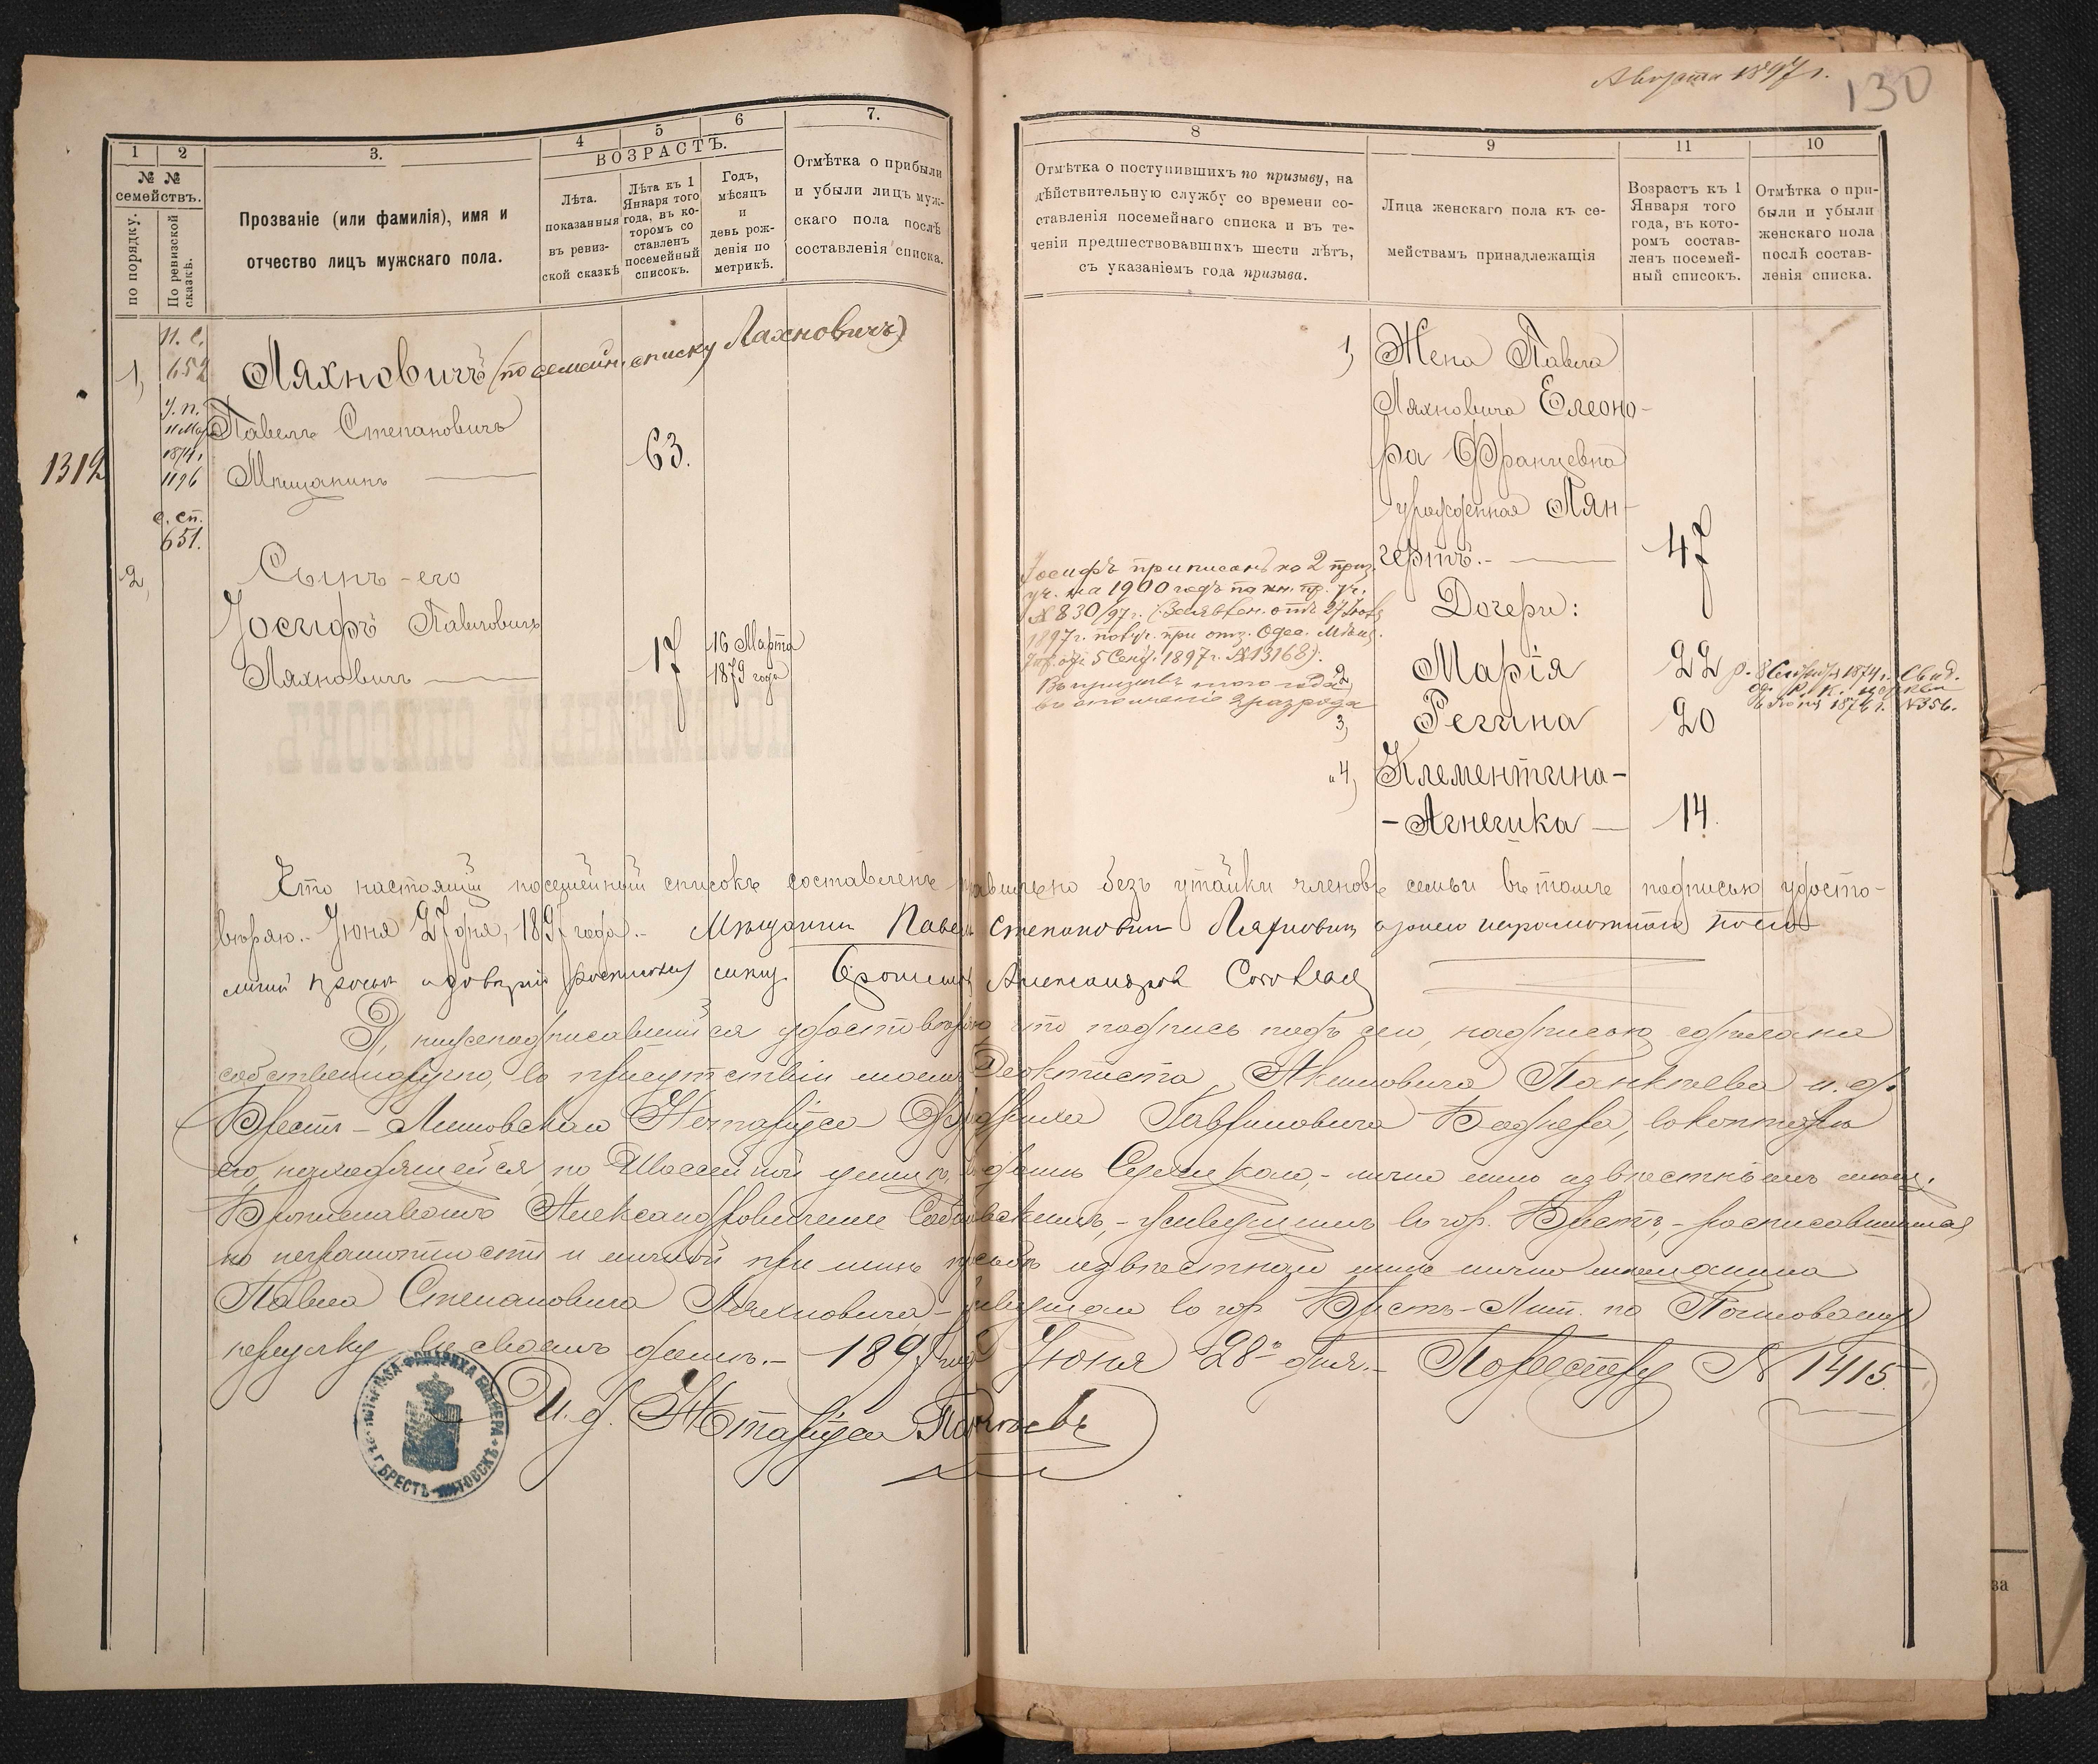 Августа 1897 г.
130
1
2
3.
4
5
6
7.
№ №
семействъ.
по порядку.
По ревизской
сказкѣ.
Прозваніе (или фамилія), имя и
отчество лицъ мужскаго пола.
ВОЗРАСТЪ.
Лѣта.
показанныя
въ ревиз-
ской сказкѣ
Лѣта къ 1
Января того
года, въ ко-
торомъ со
ставленъ
посемейный
списокъ.
Годъ,
мѣсяцъ
и
день рож-
денія по
метрикѣ.
Отмѣтка о прибыли
и убыли лицъ муж-
скаго пола послѣ
составленія списка.
1,
П. С.
652
Ляхновичъ (по семейн. списку Лахновичъ)
У. п.
1874 г.
1196
Павелъ Степановичъ
1312
Мѣщанинъ
63.
с. сп.
651.
2,
Сынъ-его
Іосифъ Павловичъ
Ляхновичъ
17
16 Марта
1879 года
8
9
11
10
Отмѣтка о поступившихъ по призыву, на
дѣйствительную службу со времени со-
ставленія посемейнаго списка и въ те-
ченіи предшествовавшихъ шести лѣтъ,
съ указаніемъ года призыва.
Лица женскаго пола къ се-
мействамъ принадлежащія
Возрастъ къ 1
Января того
года, въ кото-
ромъ состав-
ленъ посемей-
ный списокъ.
Отмѣтка о при-
были и убыли
женскаго пола
послѣ состав-
ленія списка.
1, Жена Павла
Ляхновича Елеоно-
ра Францевна
урожденная Лян-
гертъ.- 47
Іосифъ приписанъ ко 2 приз.
уч. на 1900 годъ по кн. пр. уч.
№ 830/97 г. (Заявлен. отъ 27 Іюня
1897 г. получ. при отз. Одес. Мѣщ.
Упр. отъ 5 Сент. 1897 г. №13168).
Въ призывъ того года
въ ополченіе 2 разряда
Дочери:
2, Марія 22
р. 8 Сентября 1874 г. Свид.
Р. К. церкви
1876 г. №356.
3, Регина 20
4, Клементина-
-Агнешка 14.
Что настоящій посемейный списокъ составленъ правильно безъ утайки членовъ семьи въ томъ подписью удосто-
вѣряю.- Іюня 27 дня, 1897 года.- Мѣщанин Павелъ Степанович Ляхнович а за него неграмотнаго по его
личной просьбѣ и довѣрію росписался Брониславъ Александров
Я, нижеподписавшійся удостовѣряю, что подпись подъ сею, надписью сдѣлана
собственноручно, въ присутствіи моемъ Феоктиста Акимовича Пантѣева и. д.
Брестъ-Литовскаго Нотаріуса Фридриха Гавриловича Боднера, въ конторѣ
его, находящейся, по Шоссейной улицѣ, въ домѣ - лично мнѣ извѣстнымъ
Брониславомъ Александровичемъ - живущимъ въ гор. Брестѣ, - росписавшимся
по неграмотности и личной при мнѣ просьбѣ извѣстнаго мнѣ лично мѣщанина
Павла Степановича Ляхновича,- живущаго въ гор. Брестъ-Лит. по
переулку въ своемъ домѣ.- 1897 года Іюня 28го дня.- По реестру № 1415.
И. д. Нотаріуса Пантѣевъ
Г. БРЕСТЪ-ЛИТОВСКЪ